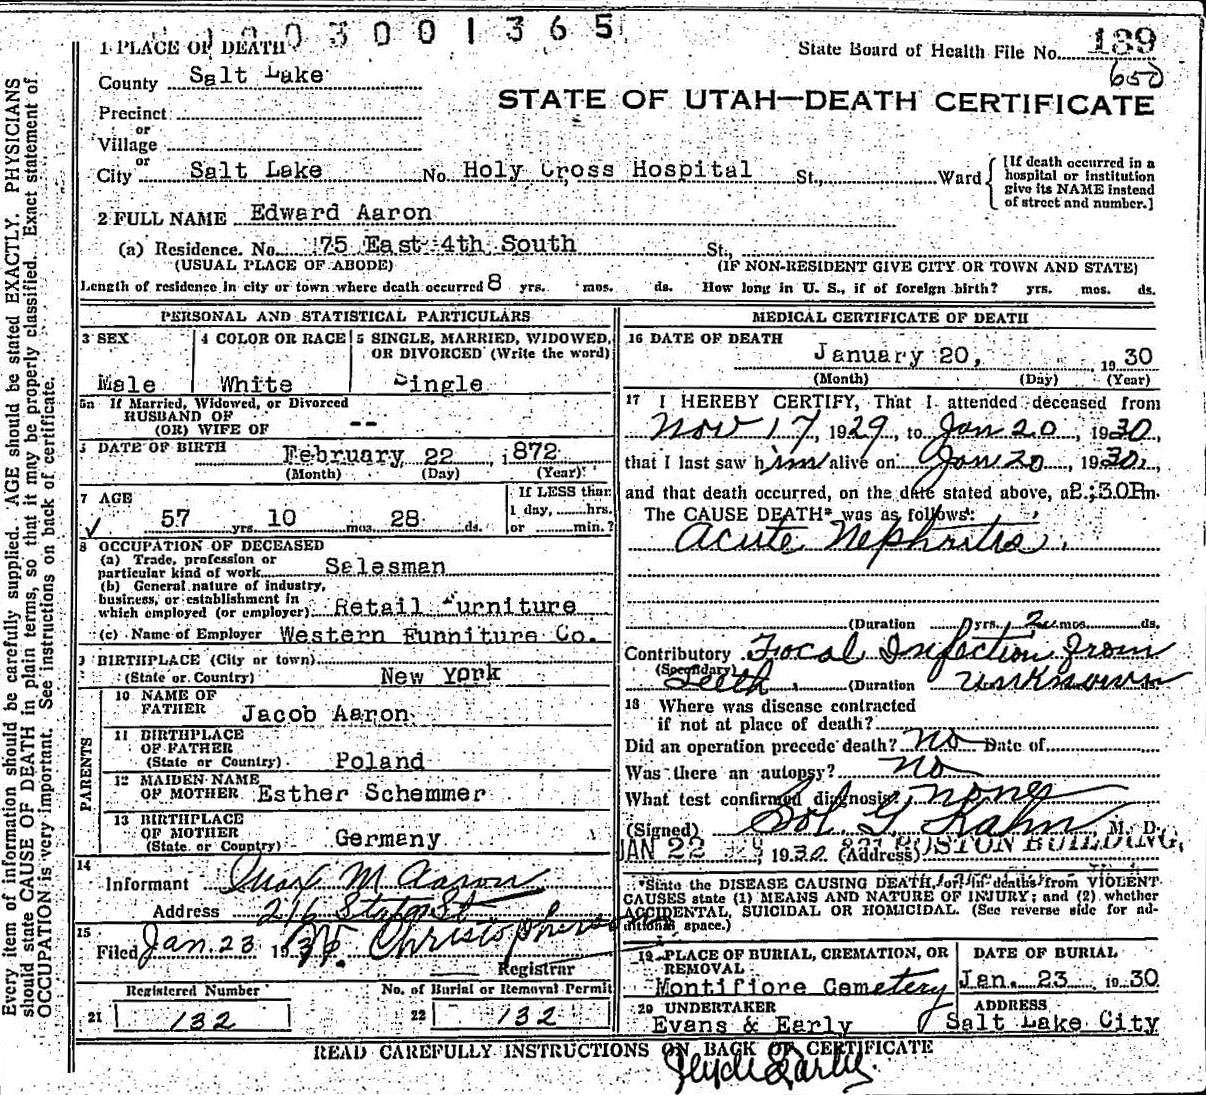 0300 1365
State Board of Health File No. 189
650
1 PLACE OF DEATH
County Salt Lake
STATE OF UTAH—DEATH CERTIFICATE
Precinct
or
Village
or
City Salt Lake No. Holy Cross Hospital St., Ward
[If death occurred in a
hospital or institution
give its NAME instead
of street and number.]
2 FULL NAME Edward Aaron
(a) Residence. No. 175 East 4th South St.,
(USUAL PLACE OF ABODE) (IF NON-RESIDENT GIVE CITY OR TOWN AND STATE)
Length of residence in city or town where death occurred 8 yrs. mos. ds. How long in U. S., if of foreign birth? yrs. mos. ds.
PERSONAL AND STATISTICAL PARTICULARS
3 SEX
Male
4 COLOR OR RACE
White
5 SINGLE, MARRIED, WIDOWED,
OR DIVORCED (Write the word)
Single
5a If Married, Widowed, or Divorced
HUSBAND OF
(OR) WIFE OF --
DATE OF BIRTH February 22, 1872
(Month) (Day) (Year)
7 AGE
57 yrs. 10 mos. 28 ds.
If LESS than
1 day, hrs.
or min.?
8 OCCUPATION OF DECEASED
(a) Trade, profession or
particular kind of work Salesman
(b) General nature of industry,
business, or establishment in
which employed (or employer) Retail Furniture
(c) Name of Employer Western Furniture Co.
9 BIRTHPLACE (City or town)
(State or Country) New York
PARENTS
10 NAME OF
FATHER Jacob Aaron
11 BIRTHPLACE
OF FATHER
(State or Country) Poland
12 MAIDEN NAME
OF MOTHER Esther Schemmer
13 BIRTHPLACE
OF MOTHER
(State or Country) Germany
14
Informant M Aaron
Address 216 State St
15
Filed Jan. 23 1930 W. Christopherson
Registrar
Registered Number
21 132
No. of Burial or Removal Permit
22 132
MEDICAL CERTIFICATE OF DEATH
16 DATE OF DEATH
January 20, 1930
(Month) (Day) (Year)
17 I HEREBY CERTIFY, That I attended deceased from
Nov 17, 1929, to Jan 20, 1930,
that I last saw him alive on Jan 20, 1930,
and that death occurred, on the date stated above, a2:30Pm.
The CAUSE DEATH* was as follows:
Acute Nephritis.
(Duration 0 yrs. 2 mos. ds.
Contributory Focal Infection from
(Secondary)
Teeth. (Duration unknown ds.
18 Where was disease contracted
if not at place of death?
Did an operation precede death? no Date of
Was there an autopsy? no
What test confirmed diagnosis, none
(Signed) Sol G. Kahn, M. D.
JAN 22 1930 (Address) BOSTON BUILDING,
*State the DISEASE CAUSING DEATH, or in deaths from VIOLENT
CAUSES state (1) MEANS AND NATURE OF INJURY; and (2) whether
ACCIDENTAL, SUICIDAL OR HOMICIDAL. (See reverse side for ad-
ditional space.)
19 PLACE OF BURIAL, CREMATION, OR
REMOVAL
Montifiore Cemetery
DATE OF BURIAL
Jan. 23 1930
20 UNDERTAKER
Evans & Early
ADDRESS
Salt Lake City
READ CAREFULLY INSTRUCTIONS ON BACK OF CERTIFICATE
Every item of information should be carefully supplied. AGE should be stated EXACTLY. PHYSICIANS
should state CAUSE OF DEATH in plain terms, so that it may be properly classified. Exact statement of
OCCUPATION is very important. See instructions on back of certificate.